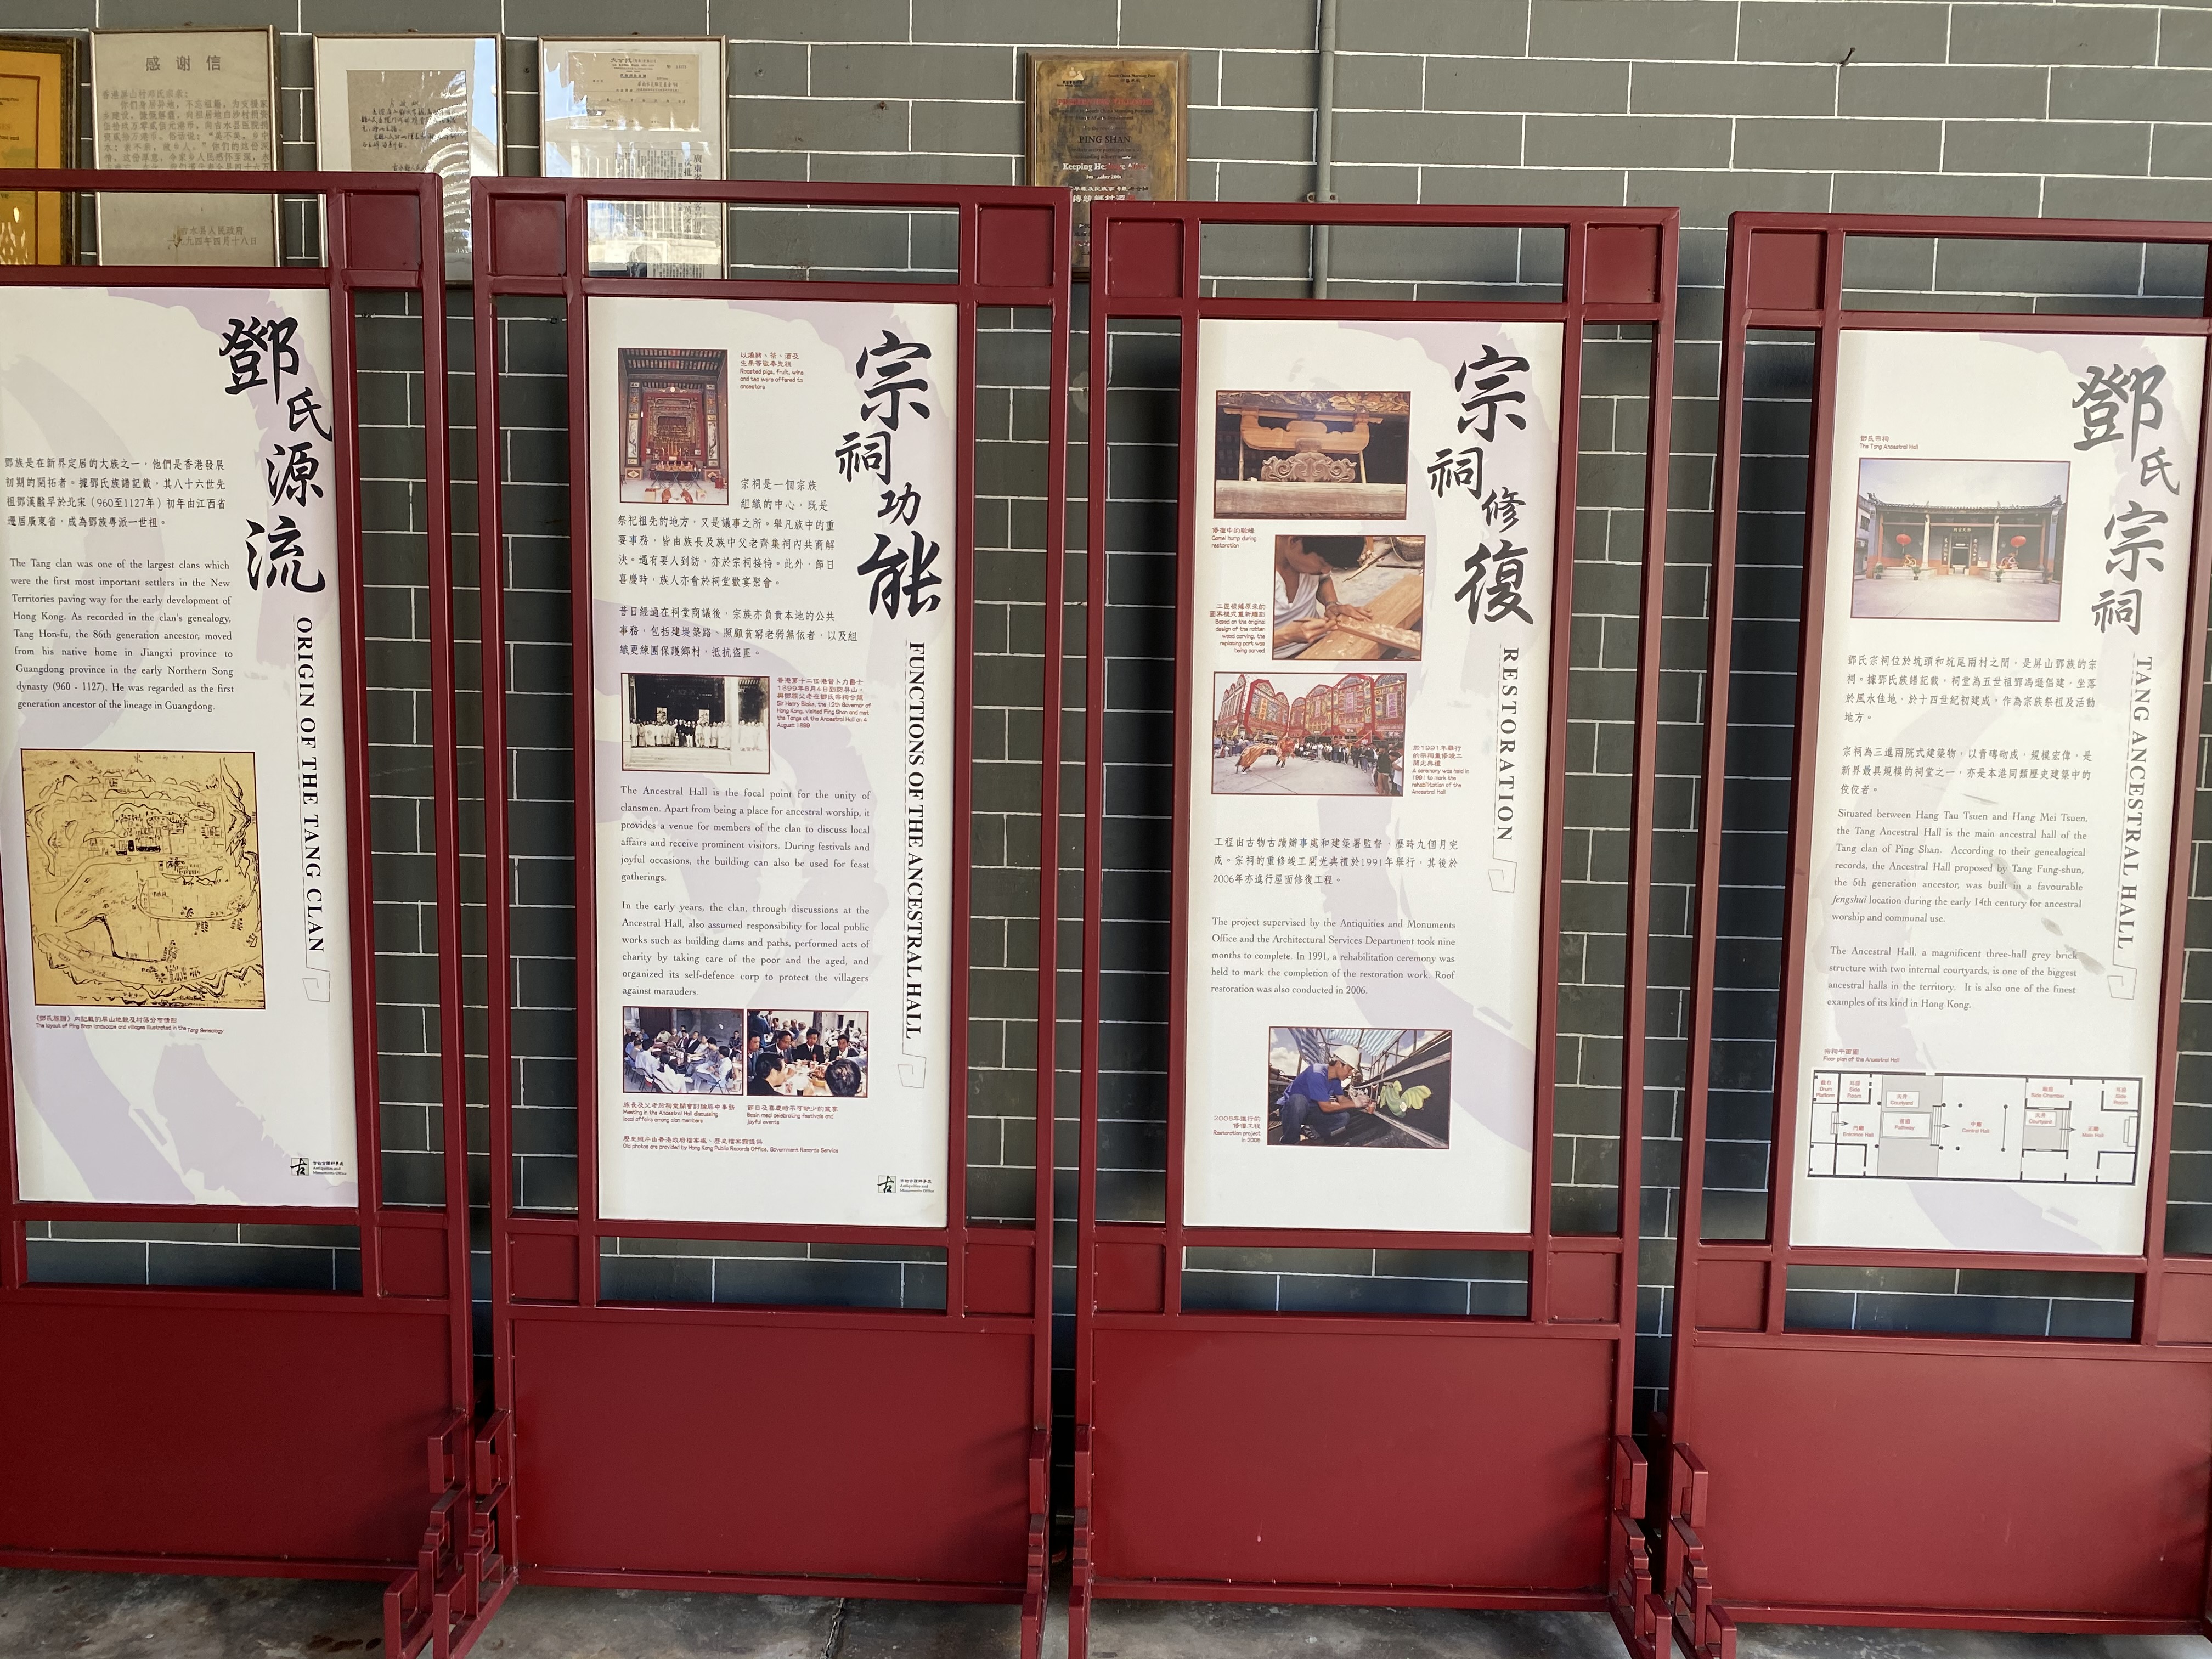 感谢信
香港屏山村邓氏宗亲:
吉水县人民政府
一九九四年四月十八日
PING SHAN
Keeping Heritage Alive
鄧氏源流
ORIGIN OF THE TANG CLAN
鄧族是在新界定居的大族之一，他們是香港發展
初期的開拓者。據鄧氏族譜記載，其八十六世先
祖鄧漢黻早於北宋（960至1127年）初年由江西省
遷居廣東省，成為鄧族粵派一世祖。
The Tang clan was one of the largest clans which
were the first most important settlers in the New
Territories paving way for the early development of
Hong Kong. As recorded in the clan's genealogy,
Tang Hon-fu, the 86th generation ancestor, moved
from his native home in Jiangxi province to
Guangdong province in the early Northern Song
dynasty (960 - 1127). He was regarded as the first
generation ancestor of the lineage in Guangdong.
《鄧氏族譜》內記載的屏山地貌及村落分布情形
The layout of Ping Shan landscape and villages illustrated in the Tang Genealogy
古物古蹟辦事處
Antiquities and
Monuments Office
宗祠功能
FUNCTIONS OF THE ANCESTRAL HALL
以燒豬、茶、酒及
生果等敬奉先祖
Roasted pigs, fruit, wine
and tea were offered to
ancestors
宗祠是一個宗族
組織的中心，既是
祭祀祖先的地方，又是議事之所。舉凡族中的重
要事務，皆由族長及族中父老齊集祠內共商解
決。遇有要人到訪，亦於宗祠接待。此外，節日
喜慶時，族人亦會於祠堂歡宴聚會。
昔日經過在祠堂商議後，宗族亦負責本地的公共
事務，包括建堤築路、照顧貧窮老弱無依者，以及組
織更練團保護鄉村，抵抗盜匪。
香港第十二任港督卜力爵士
1899年8月4日到訪屏山，
與鄧族父老在鄧氏宗祠合照
Sir Henry Blake, the 12th Governor of
Hong Kong, visited Ping Shan and met
the Tangs at the Ancestral Hall on 4
August 1899
The Ancestral Hall is the focal point for the unity of
clansmen. Apart from being a place for ancestral worship, it
provides a venue for members of the clan to discuss local
affairs and receive prominent visitors. During festivals and
joyful occasions, the building can also be used for feast
gatherings.
In the early years, the clan, through discussions at the
Ancestral Hall, also assumed responsibility for local public
works such as building dams and paths, performed acts of
charity by taking care of the poor and the aged, and
organized its self-defence corp to protect the villagers
against marauders.
族長及父老於祠堂開會討論族中事務
Meeting in the Ancestral Hall discussing
local affairs among clan members
節日及喜慶時不可缺少的盆宴
Basin meal celebrating festivals and
joyful events
歷史照片由香港政府檔案處、歷史檔案館提供
Old photos are provided by Hong Kong Public Records Office, Government Records Service
古物古蹟辦事處
Antiquities and
Monuments Office
宗祠修復
RESTORATION
修復中的駝峰
Camel hump during
restoration
工匠根據原來的
圖案模式重新雕刻
Based on the original
design of the rotten
wood carving, the
replacing part was
being carved
於1991年舉行
的宗祠重修竣工
開光典禮
A ceremony was held in
1991 to mark the
rehabilitation of the
Ancestral Hall
工程由古物古蹟辦事處和建築署監督，歷時九個月完
成。宗祠的重修竣工開光典禮於1991年舉行，其後於
2006年亦進行屋面修復工程。
The project supervised by the Antiquities and Monuments
Office and the Architectural Services Department took nine
months to complete. In 1991, a rehabilitation ceremony was
held to mark the completion of the restoration work. Roof
restoration was also conducted in 2006.
2006年進行的
修復工程
Restoration project
in 2006
鄧氏宗祠
TANG ANCESTRAL HALL
鄧氏宗祠
The Tang Ancestral Hall
鄧氏宗祠位於坑頭和坑尾兩村之間，是屏山鄧族的宗
祠。據鄧氏族譜記載，祠堂為五世祖鄧馮遜倡建，坐落
於風水佳地，於十四世紀初建成，作為宗族祭祖及活動
地方。
宗祠為三進兩院式建築物，以青磚砌成，規模宏偉，是
新界最具規模的祠堂之一，亦是本港同類歷史建築中的
佼佼者。
Situated between Hang Tau Tsuen and Hang Mei Tsuen,
the Tang Ancestral Hall is the main ancestral hall of the
Tang clan of Ping Shan. According to their genealogical
records, the Ancestral Hall proposed by Tang Fung-shun,
the 5th generation ancestor, was built in a favourable
fengshui location during the early 14th century for ancestral
worship and communal use.
The Ancestral Hall, a magnificent three-hall grey brick
structure with two internal courtyards, is one of the biggest
ancestral halls in the territory. It is also one of the finest
examples of its kind in Hong Kong.
宗祠平面圖
Floor plan of the Ancestral Hall
鼓台
Drum
Platform
耳房
Side
Room
天井
Courtyard
甬道
Pathway
門廳
Entrance Hall
中廳
Central Hall
廂房
Side Chamber
天井
Courtyard
耳房
Side
Room
正廳
Main Hall